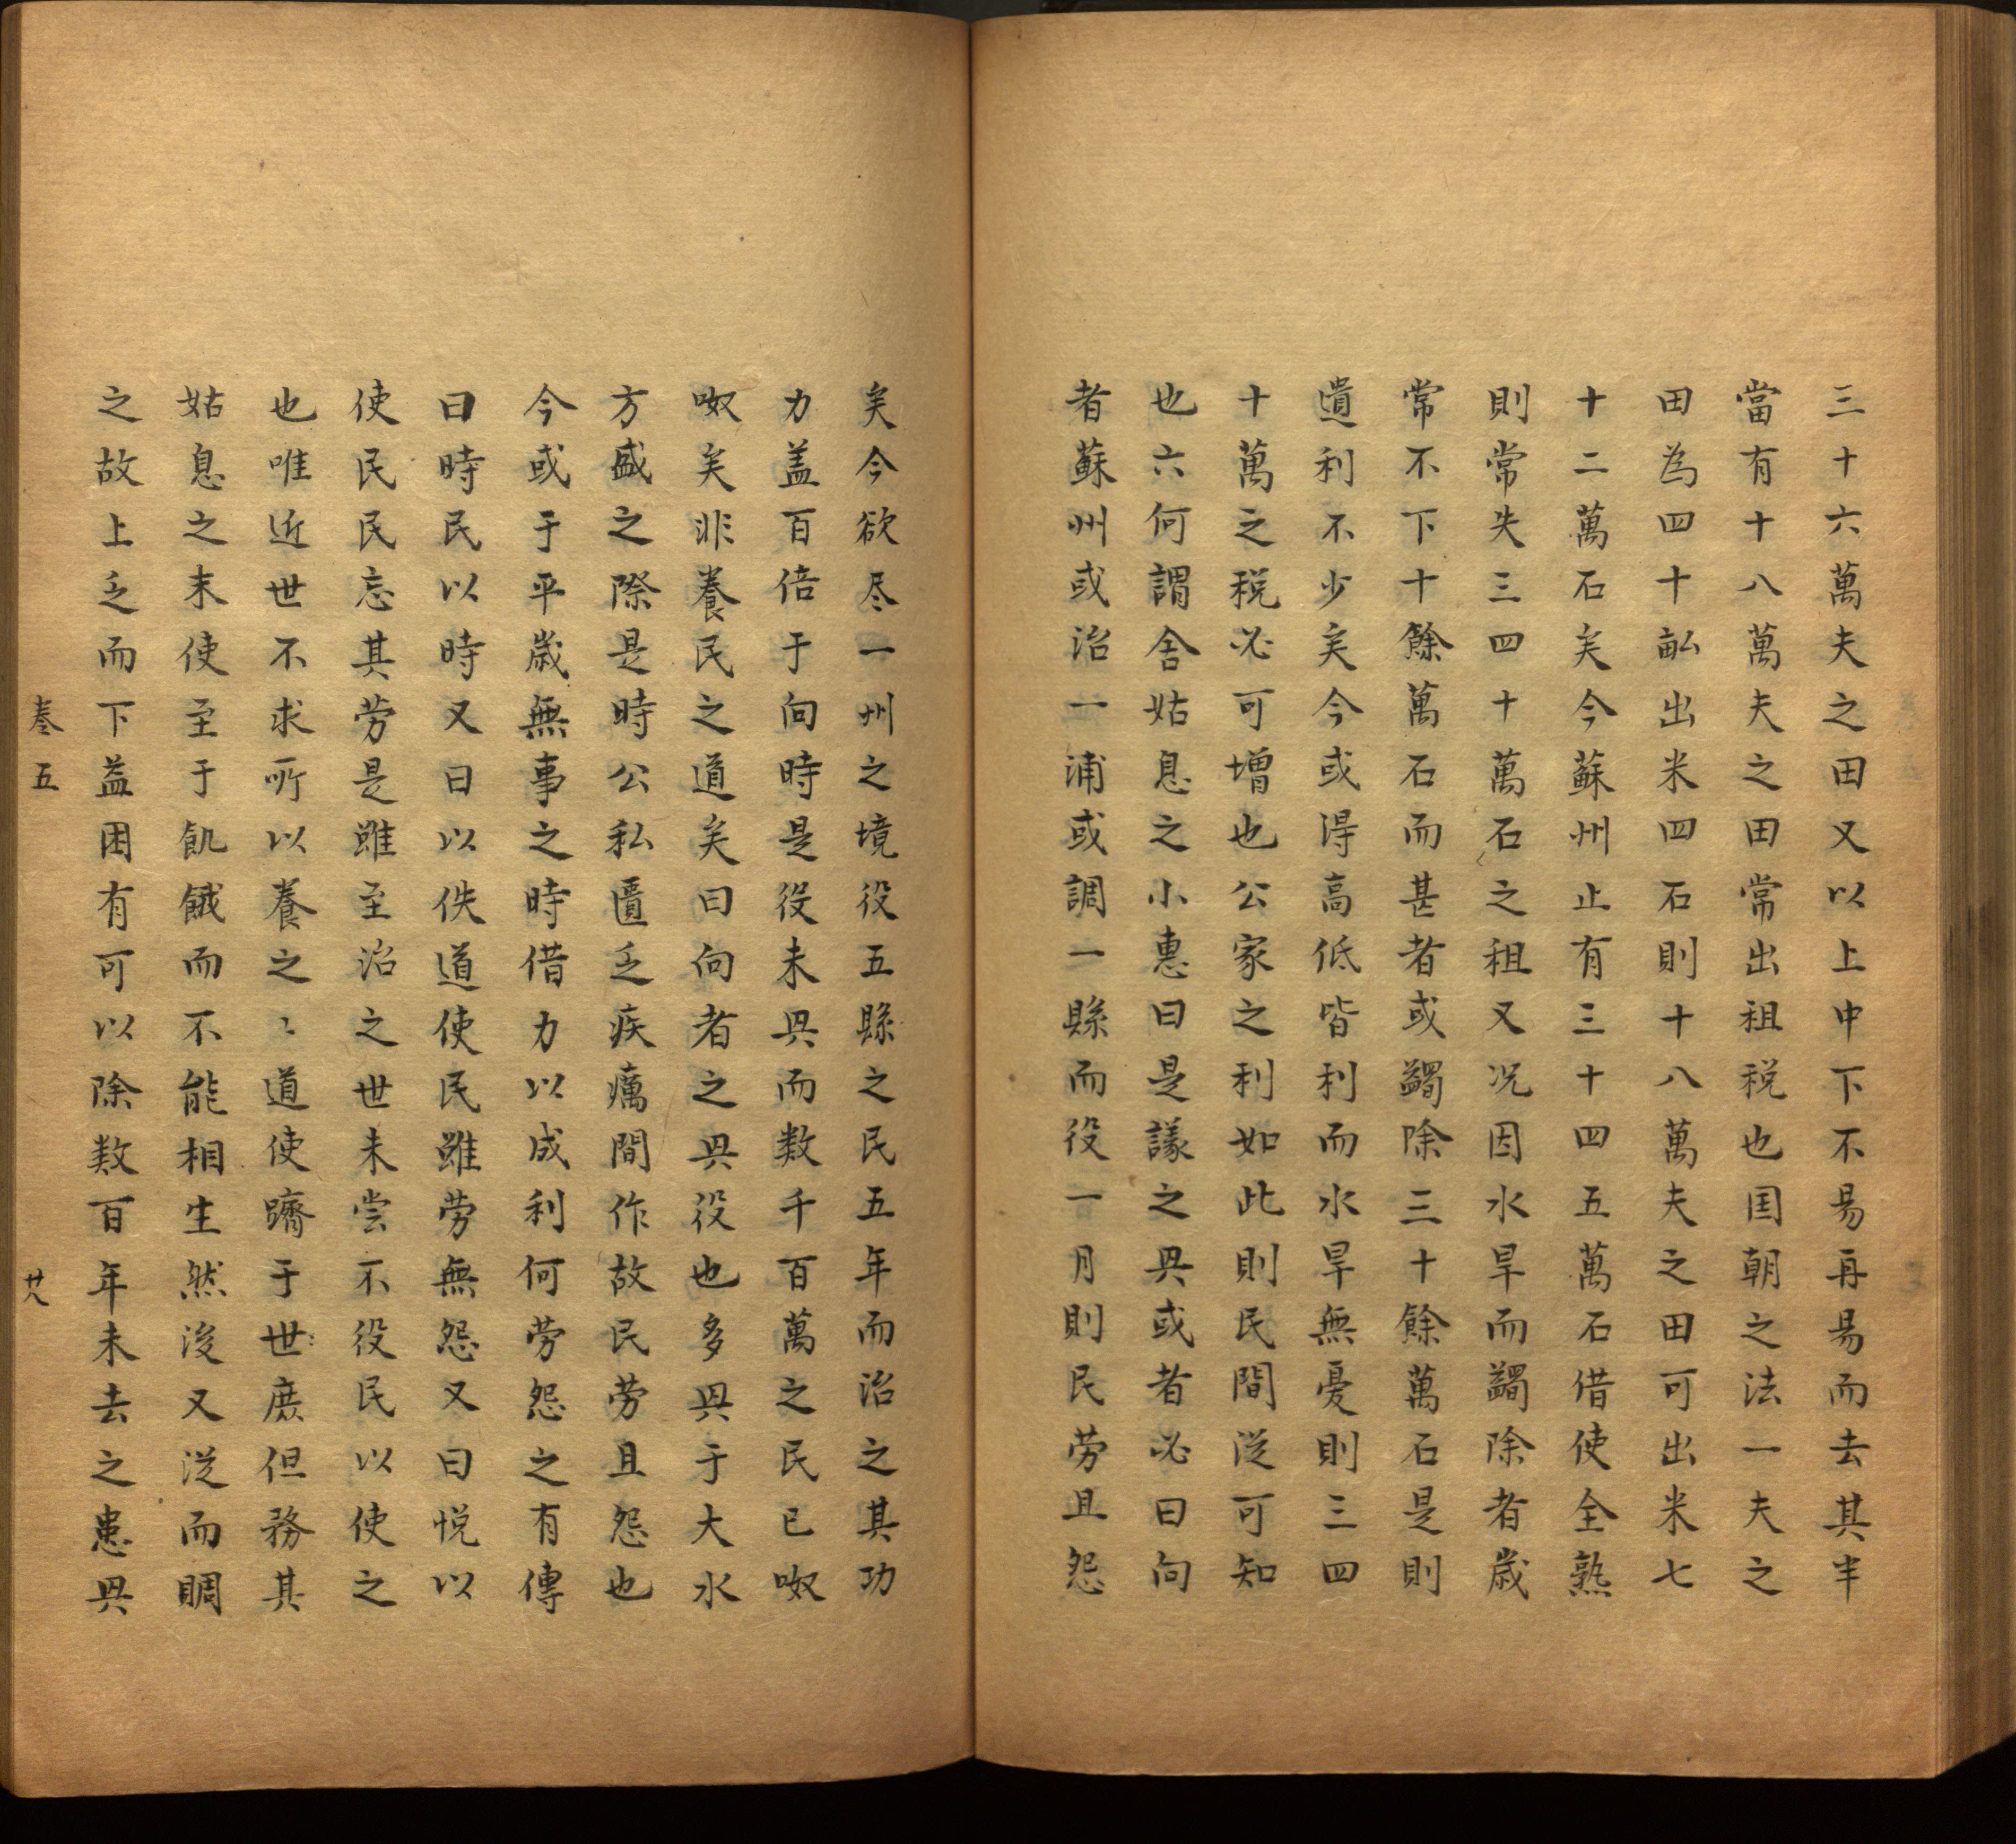 三十六萬夫之田又以上中下不易再易而去其半
當有十八萬夫之田常出租税也国朝之法一夫之
田為四十畆出米四石則十八萬夫之田可出米七
十二萬石矣今蘇州止有三十四五萬石借使全熟
則常失三四十萬石之租又况因水旱而蠲除者歳
常不下十餘萬石而甚者或蠲除三十餘萬石是則
遺利不少矣今或淂高低皆利而水旱無憂則三四
十萬之税必可增也公家之利如此則民間従可知
也六何謂舍姑息之小惠曰是議之興或者必曰向
者蘇州或治一浦或調一縣而役一月則民劳且怨
矣今欲尽一州之境役五縣之民五年而治之其功
力盖百倍于向時是役未興而数千百萬之民已呶
呶矣非養民之道矣曰向者之興役也多興于大水
方盛之際是時公私匱乏疾癘間作故民劳且怨也
今或于平歳無事之時借力以成利何劳怨之有傳
曰時民以時又曰以佚道使民雖劳無怨又曰悦以
使民民忘其劳是雖至治之世未尝不役民以使之
也唯近世不求所以養之〻道使躋于世庶但務其
姑息之末使至于飢餓而不能相生然後又従而賙
之故上乏而下益困有可以除数百年未去之患興
卷五
廿八